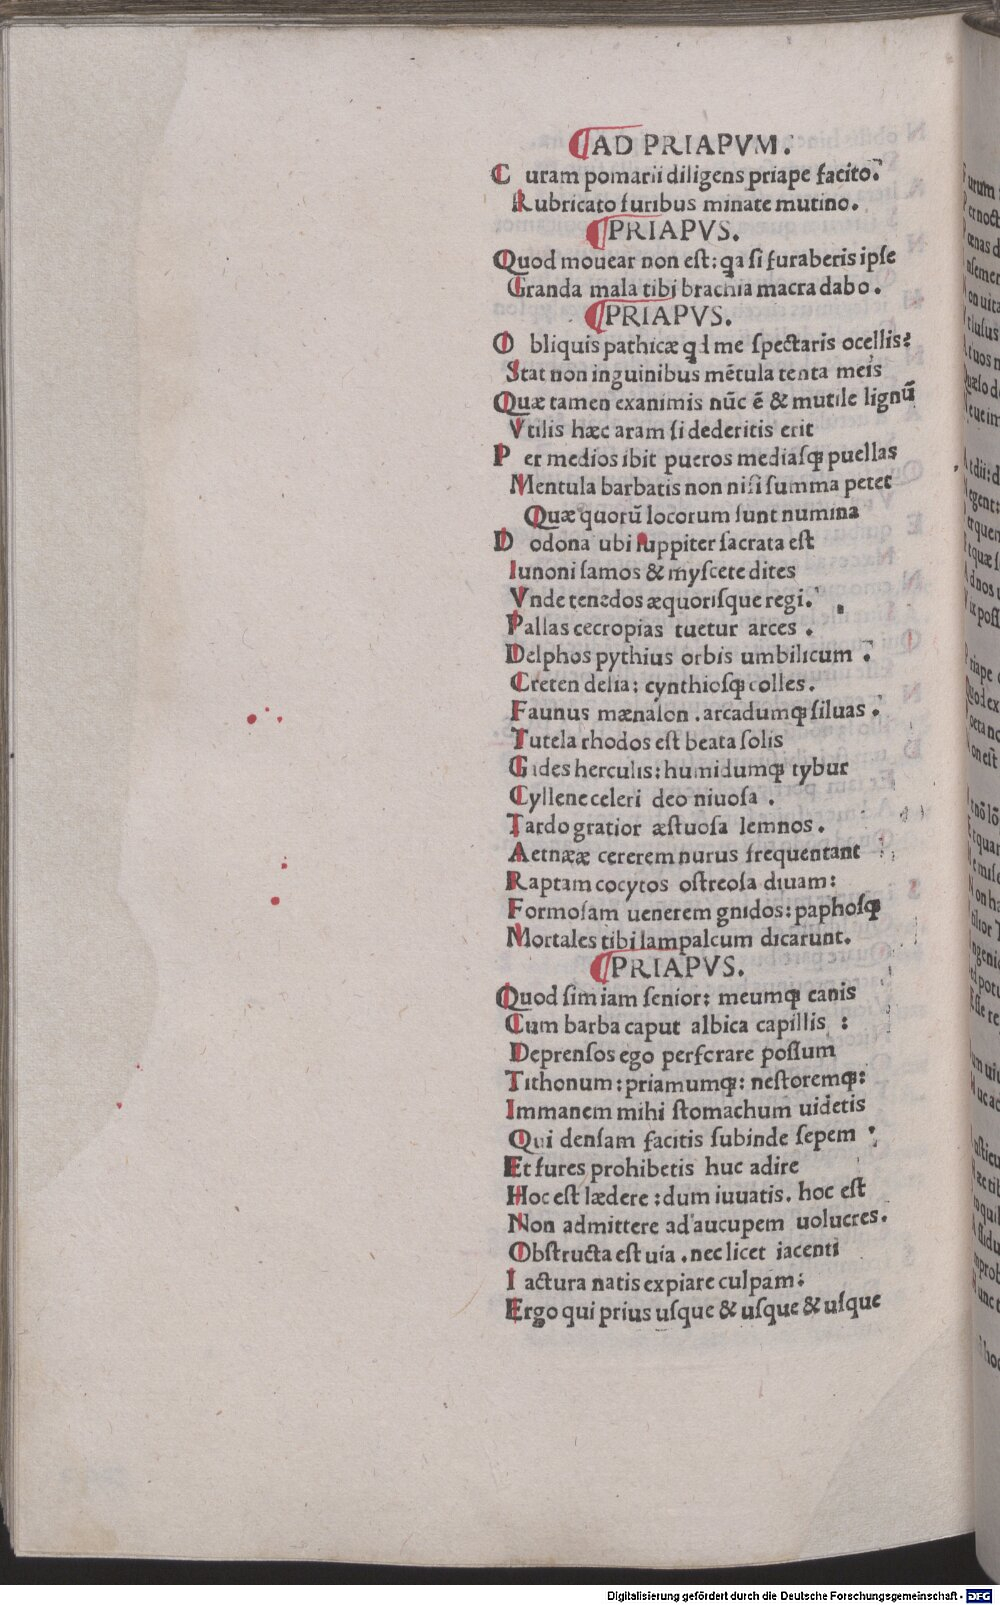 ¶AD PRIAPVM.
C uram pomarii diligens priape facito:
Rubricato furibus minate mutino.
¶PRIAPVS.
Quod mouear non eſt: qa ſi furaberis ipſe
Granda mala tibi brachia macra dabo.
¶PRIAPVS.
O bliquis pathicæ qd me ſpectaris ocellis?
Stat non inguinibus mētula tenta meis
Quæ tamen exanimis nūc ē & mutile lignū
Vtilis hæc aram ſi dederitis erit
P er medios ibit pueros mediaſqꝫ puellas
Mentula barbatis non niſi ſumma petet
Quæ quorū locorum ſunt numina
D odona ubi iuppiter ſacrata eſt
Iunoni ſamos & myſcete dites
Vnde tenedos æquoriſque regi.
Pallas cecropias tuetur arces .
Delphos pythius orbis umbilicum :
Creten delia: cynthioſqꝫ colles.
Faunus mænalon . arcadumqꝫ ſiluas .
Tutela rhodos eſt beata ſolis
Gades herculis: humidumqꝫ tybur
Cyllene celeri deo niuoſa .
Tardo gratior æſtuoſa lemnos.
Aetnææ cererem nurus frequentant
Raptam cocytos oſtreoſa diuam:
Formoſam uenerem gnidos: paphoſqꝫ
Mortales tibi lampalcum dicarunt.
¶PRIAPVS.
Quod ſim iam ſenior: meumqꝫ canis
Cum barba caput albica capillis :
Deprenſos ego perferare poſſum
Tithonum: priamumqꝫ: neſtoremqꝫ:
Immanem mihi ſtomachum uidetis
Qui denſam facitis ſubinde ſepem
Et fures prohibetis huc adire
Hoc eſt lædere: dum iuuatis. hoc eſt
Non admittere ad aucupem uolucres.
Obſtructa eſt uia . nec licet iacenti
I actura natis expiare culpam:
Ergo qui prius uſque & uſque & uſque
Digitalisierung gefördert durch die Deutsche Forschungsgemeinschaft - DFG